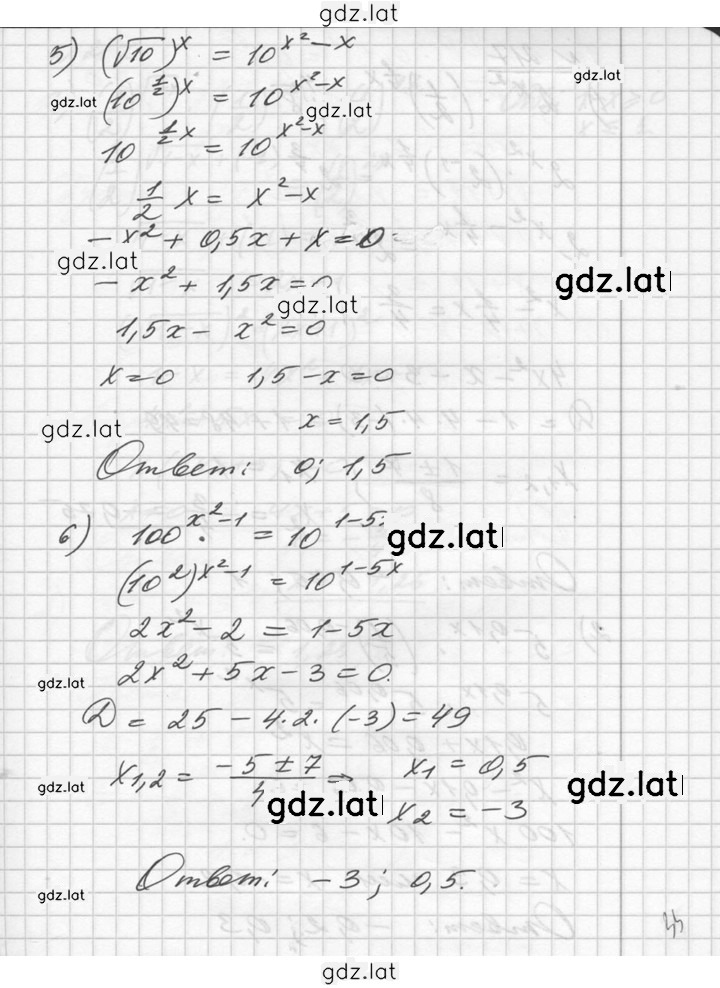 gdz.lat
5) (√10)^x = 10^(x²-x)
gdz.lat
gdz.lat (10^(1/2))^x = 10^(x²-x)
gdz.lat
10^(1/2 x) = 10^(x²-x)
1/2 x = x²-x
-x² + 0,5x + x = 0
gdz.lat
gdz.lat
-x² + 1,5x = 0
gdz.lat
1,5x - x² = 0
x = 0 1,5 - x = 0
gdz.lat x = 1,5
Ответ: 0; 1,5
6) 100^(x²-1) = 10^(1-5
gdz.lat
(10²)^(x²-1) = 10^(1-5x)
2x² - 2 = 1 - 5x
gdz.lat 2x² + 5x - 3 = 0.
D = 25 - 4·2·(-3) = 49
gdz.lat x1,2 = (-5 ± 7)/4 ⇒ x1 = 0,5
gdz.lat
gdz.lat x2 = -3
gdz.lat Ответ: -3; 0,5.
gdz.lat